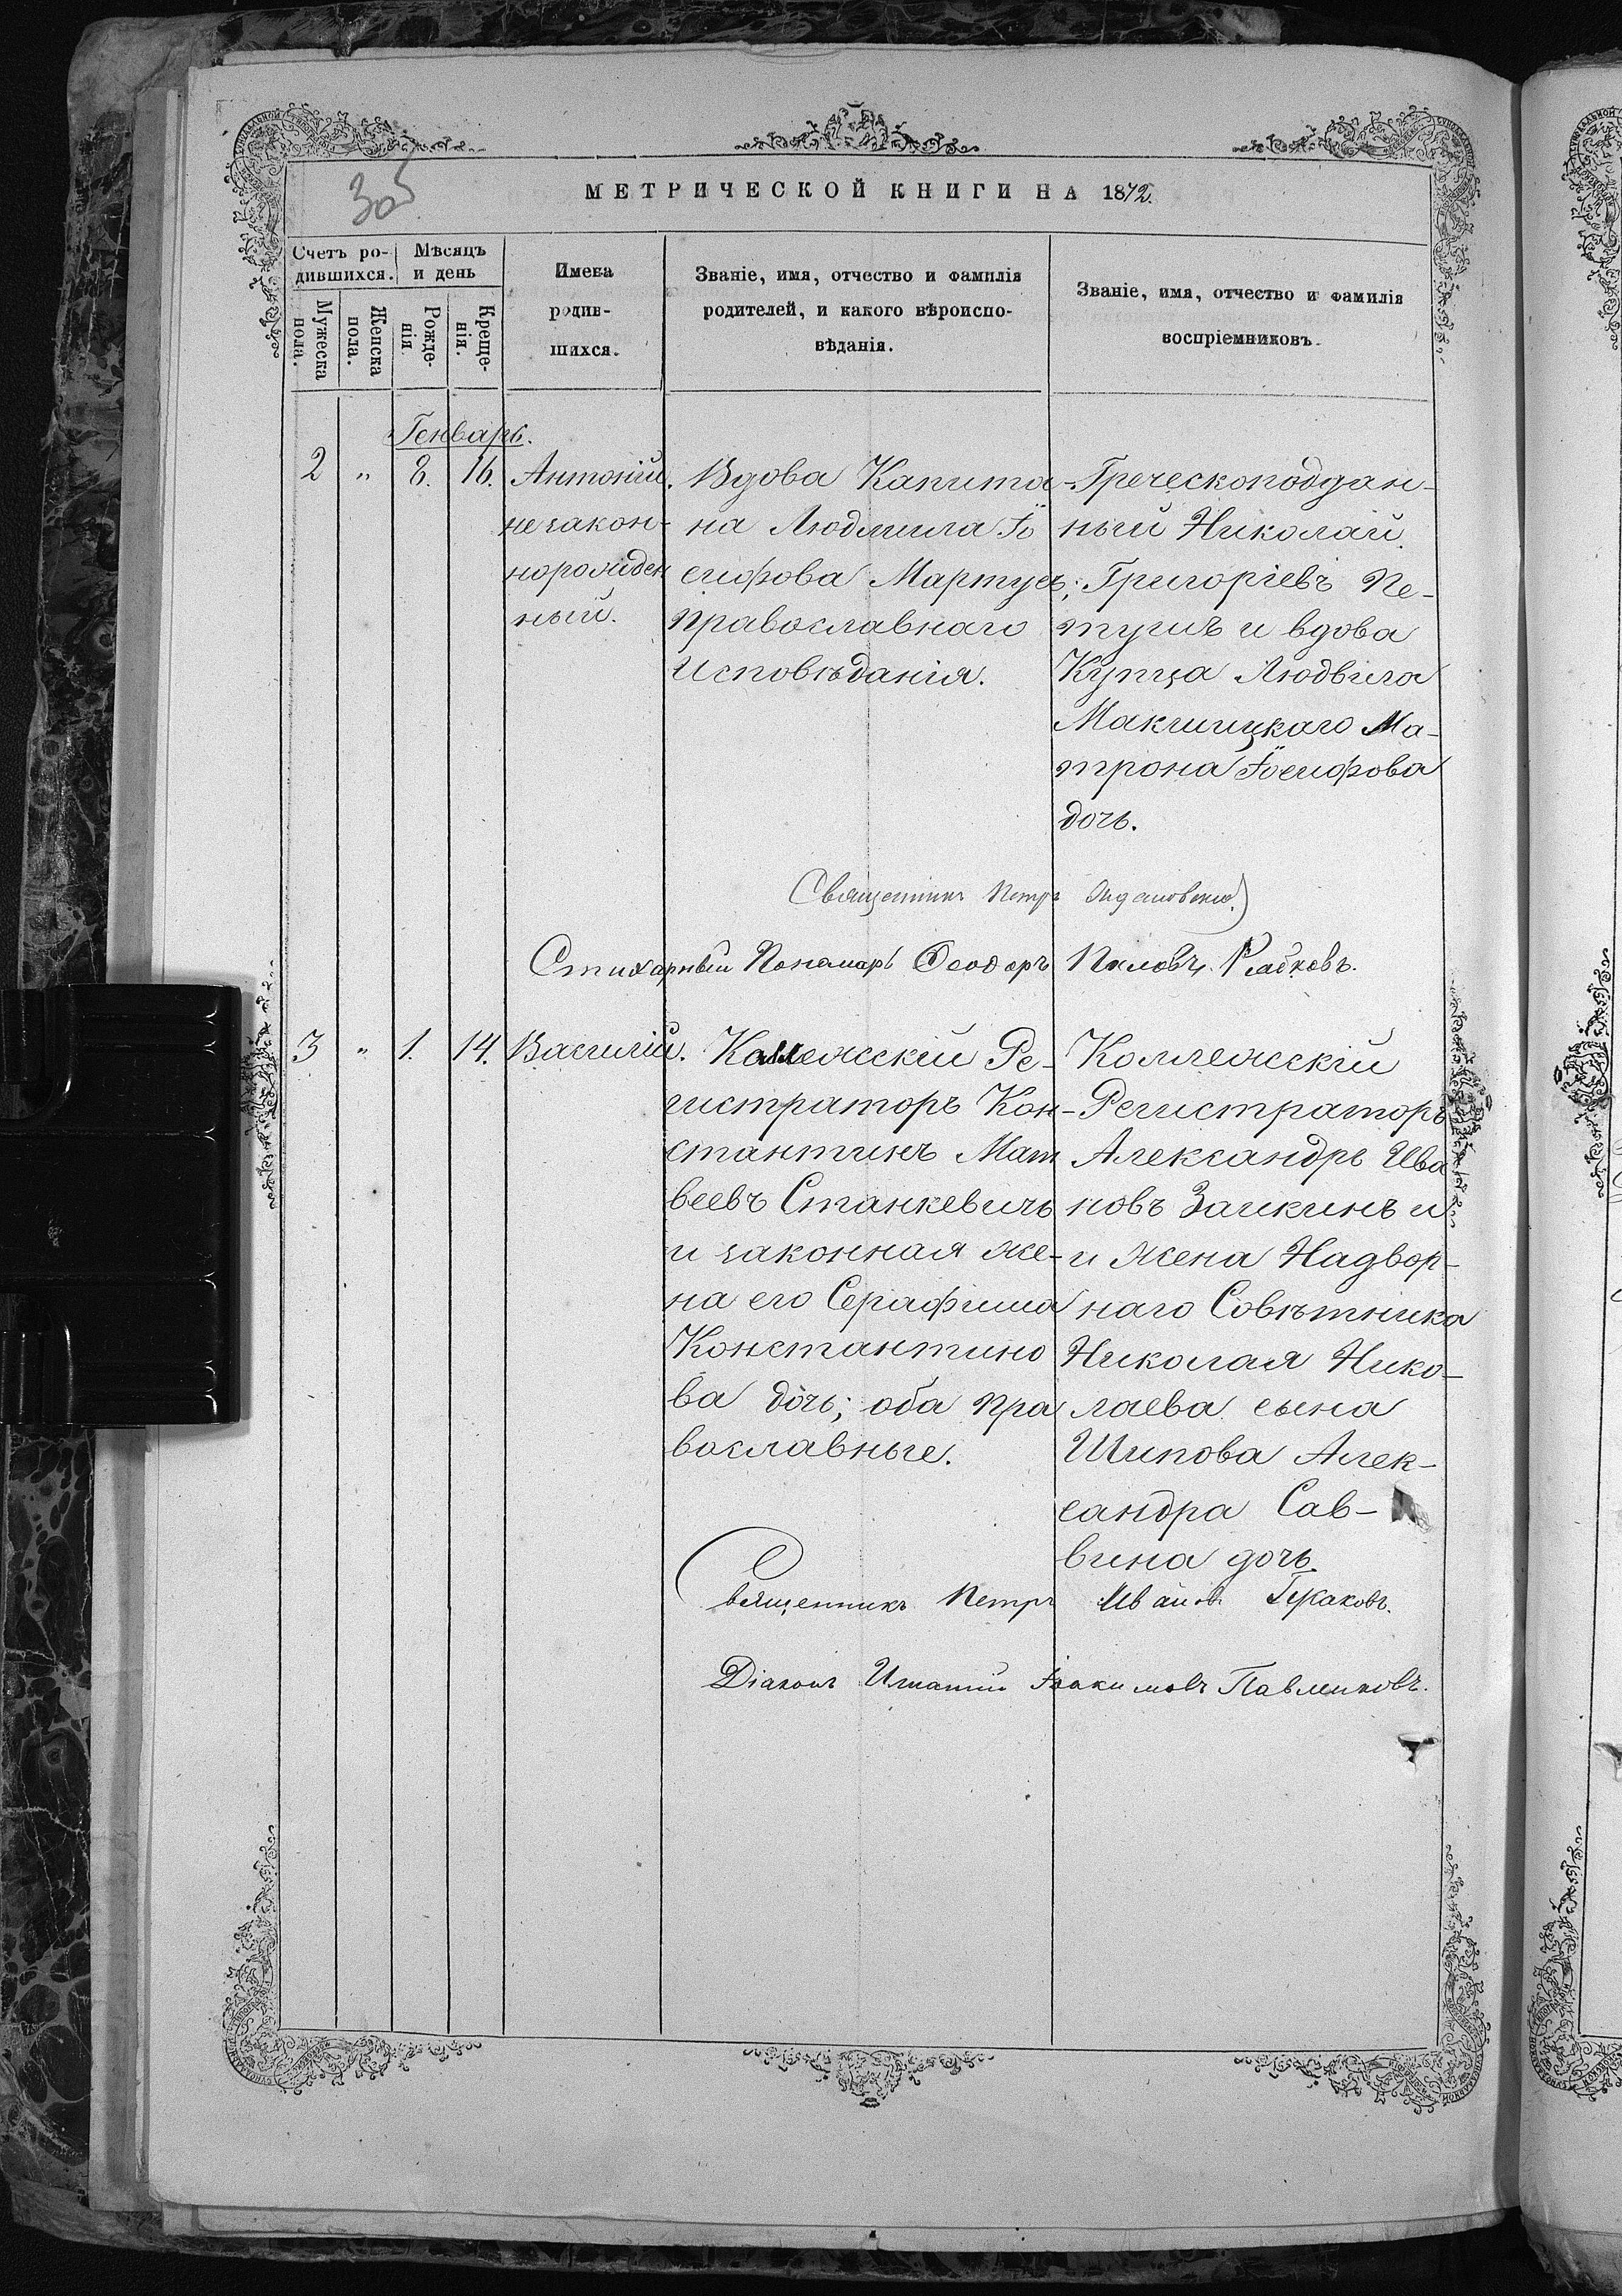 305
МЕТРИЧЕСКОЙ КНИГИ НА 1872.
Счетъ ро-
дившихся.
Мѣсяцъ
и день
Мужеска
пола.
Женска
пола.
Рожде-
нія
Креще-
нія.
Имена
родив-
шихся.
Званіе, имя, отчество и фамилія
родителей, и какого вѣроиспо-
вѣданія.
Званіе, имя, отчество и фамилія
воспріемниковъ.
Генварь.
2 " 8. 16. Антоній.
незакон-
норожден
ный.
Вдова Капита-
на Людмила Іо
сифова Мартусъ;
православнаго
исповѣданія.
Греческоподдан-
ный Николай
Григоріевъ Пе-
тушъ и вдова
Купца Людвига
Макшицкаго Ма-
трона Іосифова
дочь.
Священникъ Петръ
Стихарный Пономарь Ѳеодоръ
3 " 1. 14. Василій.
Коллежскій Ре-
гистраторъ Кон-
стантинъ Мат
веевъ Станкевичъ
и законная же-
на его Серафима
Константино
ва дочь; оба пра
вославные.
Коллежскій
Регистраторъ
Александръ Ива
новъ Заикинъ и
и жена Надвор-
наго Совѣтника
Николая Нико-
лаева сына
Шипова Алек-
сандра Сав-
вина дочь.
Священникъ Петръ Ивановъ Гераковъ.
Діаконъ Игнатій Іоакимовъ Павленковъ.